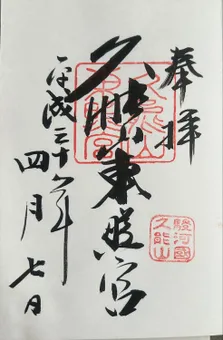 奉拝
久能山東照宮
久能山
東照宮
駿河國
久能山
平成 年
四月七日